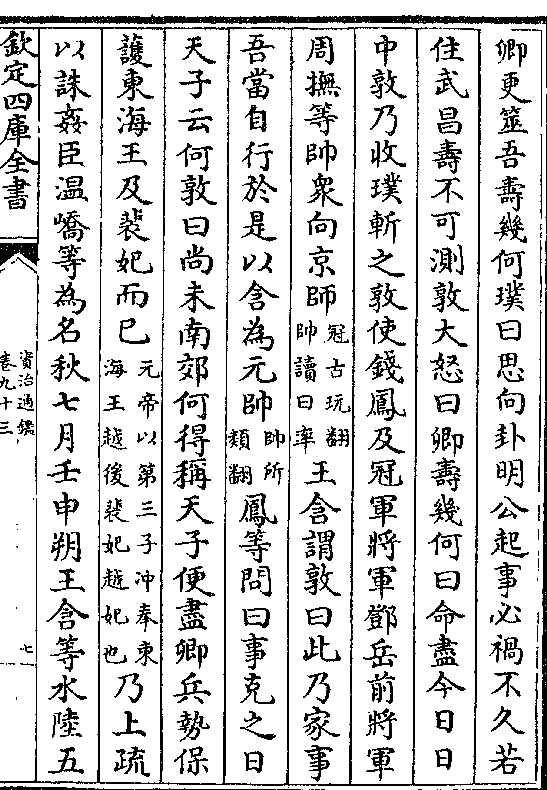 卿更筮吾壽幾何璞曰思向卦明公起事必禍不久若
住武昌壽不可測敦大怒曰卿壽幾何曰命盡今日日
中敦乃收璞斬之敦使錢鳳及冠軍將軍鄧岳前將軍
周撫等帥衆向京師冠古玩翻帥讀曰率王含謂敦曰此乃家事
吾當自行於是以含為元帥帥所類翻鳳等問曰事克之日
天子云何敦曰尚未南郊何得稱天子便盡卿兵勢保
護東海王及裴妃而已元帝以第三子冲奉東海王越後裴妃越妃也乃上疏
以誅姦臣温嶠等為名秋七月壬申朔王含等水陸五
欽定四庫全書
資治通鑑
卷九十三
七